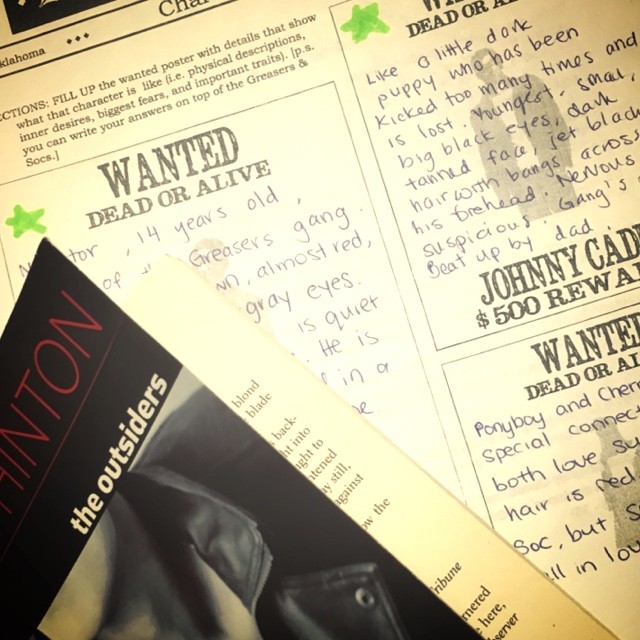 Char
klahoma
CTIONS: FILL UP the wanted poster with details that show
what that character is like (i.e. physical descriptions,
inner desires, biggest fears, and important traits). [p.s.
you can write your answers on top of the Greasers &
Socs.]
WANTED
DEAD OR ALIVE
, 14 years old,
of Greasers gang.
almost red,
gray eyes.
is quiet
He is
in a
DEAD OR AL
Like a little dark
puppy who has been
kicked too many times and
is lost. Younger, small,
big black eyes, dark
tanned face, jet black
hair with bangs across
his forehead. Nervous
suspicious. Gang's
Beat up by dad
JOHNNY CADE
$500 REWA
WANTE
DEAD OR AL
Ponyboy and Cher
Special connec
both love
hair is red
Soc, but
in lo
HINTON
the outsiders
blond
blade
back-
t into
ght to
tened
y still,
against
w the
Tribune
here,